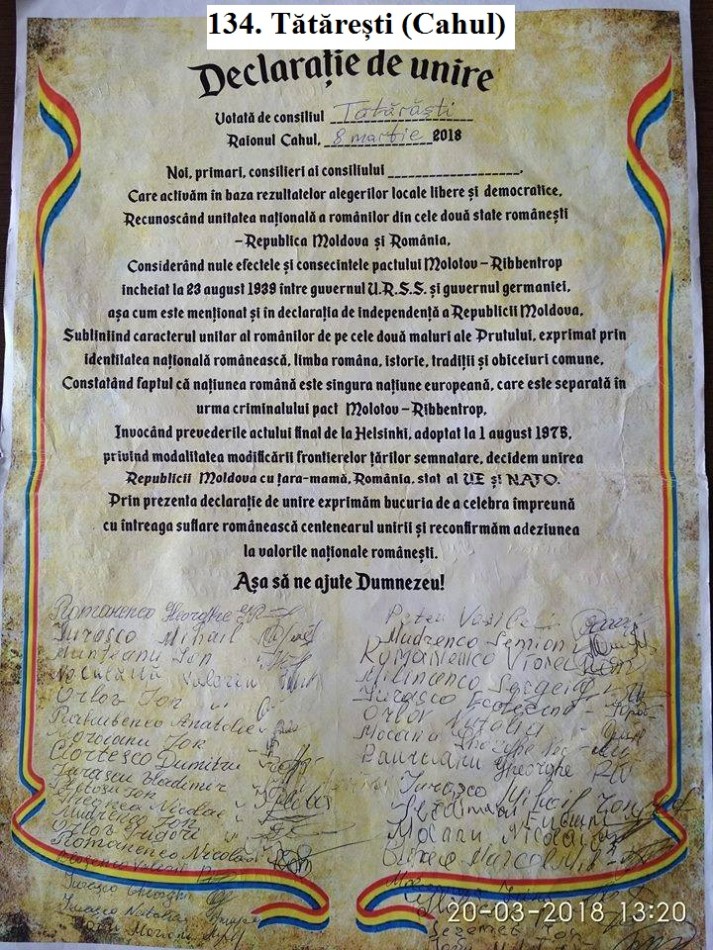 134. Tătărești (Cahul)
Declarație de unire
Votată de consiliul Tătărăști
Raionul Cahul, 8 martie 2018
Noi, primari, consilieri ai consiliului ____________________,
Care activăm în baza rezultatelor alegerilor locale libere și democratice,
Recunoscând unitatea națională a românilor din cele două state românești
– Republica Moldova și România,
Considerând nule efectele și consecintele pactului Molotov – Ribbentrop
încheiat la 23 august 1939 între guvernul U.R.S.S. și guvernul germaniei,
așa cum este menționat și în declarația de independență a Republicii Moldova,
Subliniind caracterul unitar al românilor de pe cele două maluri ale Prutului, exprimat prin
identitatea națională românească, limba româna, istorie, tradiții și obiceiuri comune,
Constatând faptul că națiunea română este singura națiune europeană, care este separată în
urma criminalului pact Molotov – Ribbentrop,
Invocând prevederile actului final de la Helsinki, adoptat la 1 august 1975,
privind modalitatea modificării frontierelor țărilor semnatare, decidem unirea
Republicii Moldova cu țara-mamă, România, stat al UE și NATO.
Prin prezenta declarație de unire exprimăm bucuria de a celebra împreună
cu întreaga suflare românească centenearul unirii și reconfirmăm adeziunea
la valorile naționale românești.
Așa să ne ajute Dumnezeu!
Romanenco Gheorghe
Mihail
Munteanu Ion
Valeriu
Orlov Ion
Anatolie
Morocanu Ion
Dumitru
Vladimir
Ion
Nicolae
Mudrenco Ion
Orlov Tudore
Romanenco Nicolae
Gheorghe
Natalia
Mudrenco Semion
Romanenco Viorel
Serghei
Ecaterina
Orlov Natalia
Mocanu
Gheorghe
Mihail
Mocanu Nicolai
Ion
20-03-2018 13:20